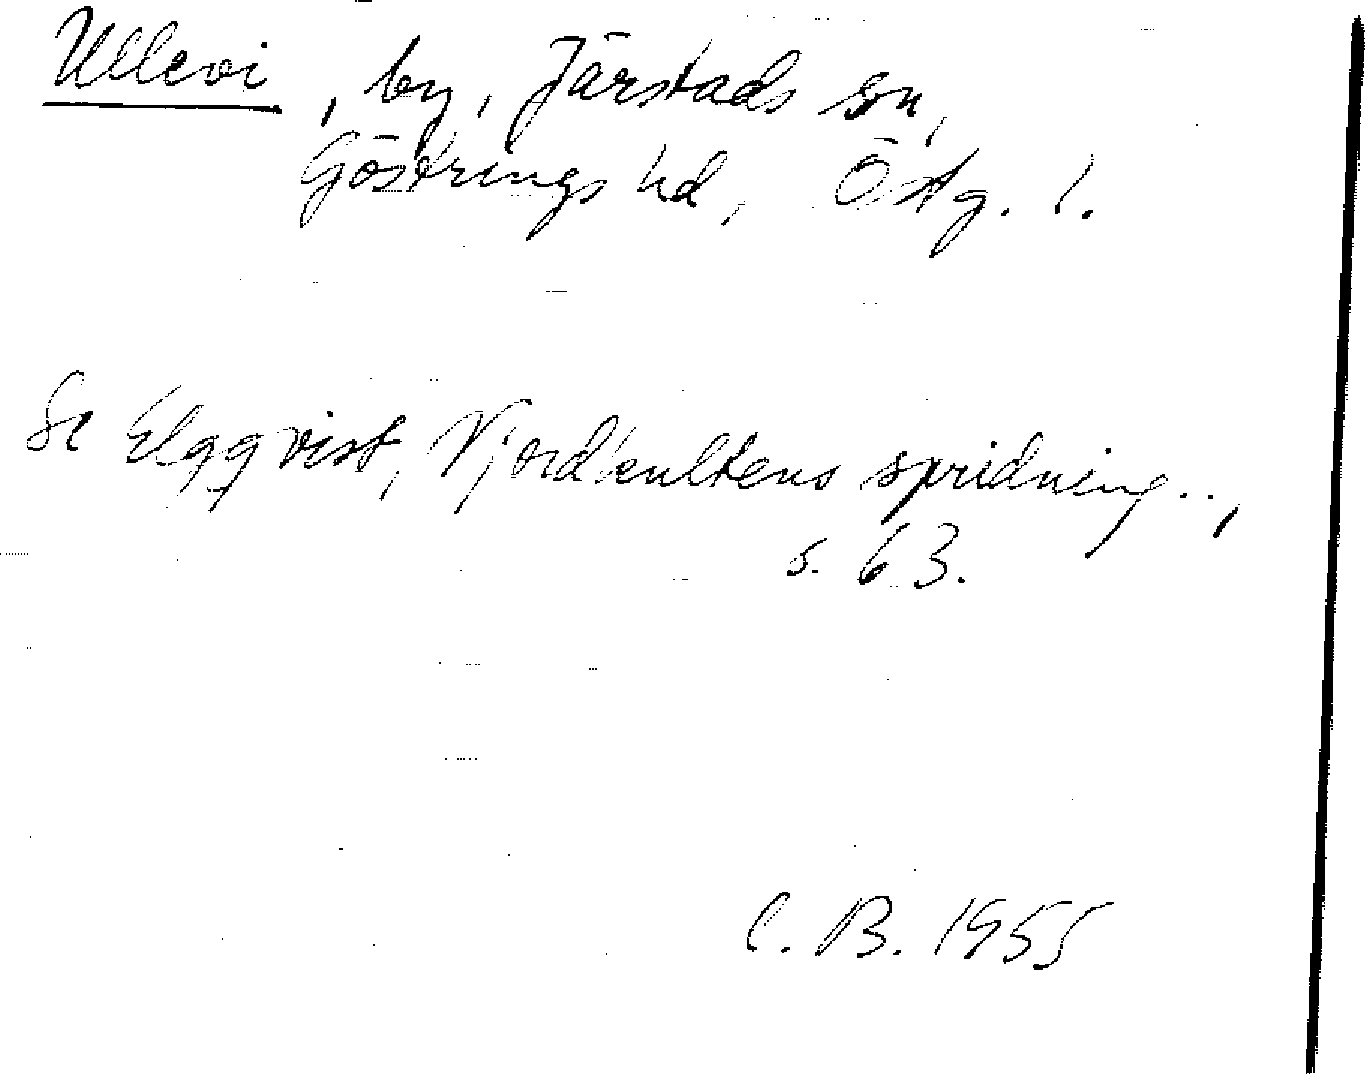 Ullevi, by, Järstads sn,
Göstrings hd, Östg. l.
Se Elgqvist, Njordkultens spridning..,
s. 63.
C. B. 1955